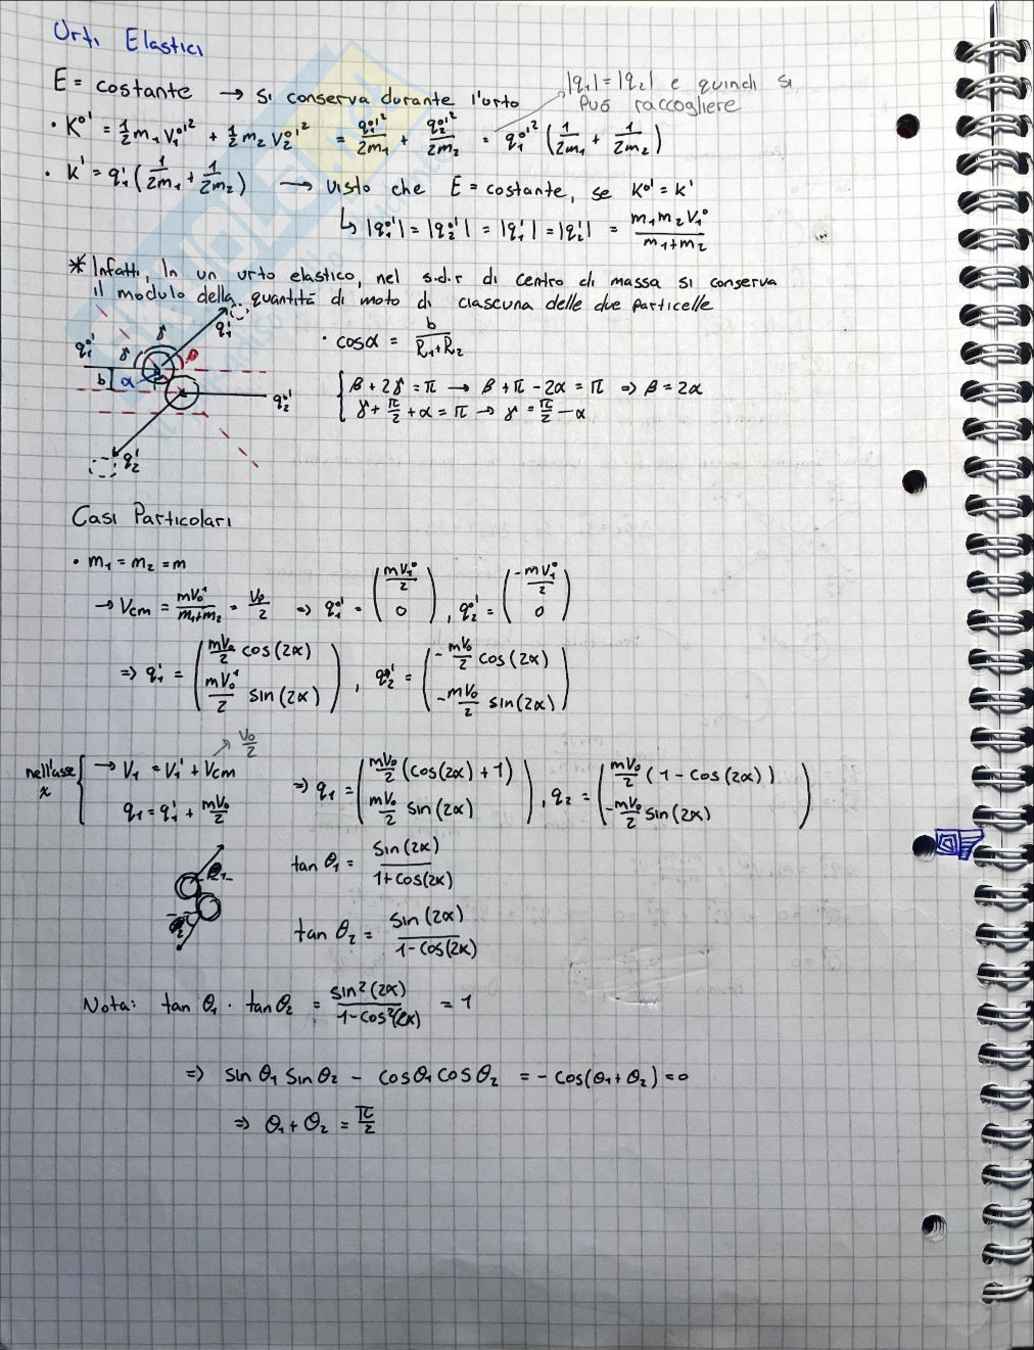 Urti Elastici
E = costante → si conserva durante l'urto
|q₁| = |q₂| e quindi si può raccogliere
• K°' = 1/2 m₁ V₁°'² + 1/2 m₂ V₂°'² = q₁°'²/2m₁ + q₂°'²/2m₂ = q₁°'² (1/2m₁ + 1/2m₂)
• K' = q₁' (1/2m₁ + 1/2m₂) → visto che E = costante, se K°' = K'
↳ |q₁°'| = |q₂°'| = |q₁'| = |q₂'| = m₁m₂V₁°/m₁+m₂
* Infatti, In un urto elastico, nel s.d.r di centro di massa si conserva
il modulo della quantità di moto di ciascuna delle due particelle
q₁'
q₁°' γ γ β
b α
q₂°'
q₂'
• cosα = b/R₁+R₂
{ β + 2γ = π → β + π - 2α = π ⇒ β = 2α
γ + π/2 + α = π → γ = π/2 - α
Casi Particolari
• m₁ = m₂ = m
→ Vcm = mV₀¹/m₁+m₂ = V₀/2 ⇒ q₁°' = (mV₁°/2 0), q₂°' = (-mV₁°/2 0)
⇒ q₁' = (mV₀/2 cos(2α) mV₀¹/2 sin(2α)), q₂' = (-mV₀/2 cos(2α) -mV₀/2 sin(2α))
V₀/2
nell'asse x { → V₁ = V₁' + Vcm
q₁ = q₁' + mV₀/2
⇒ q₁ = (mV₀/2 (cos(2α) + 1) mV₀/2 sin(2α)), q₂ = (mV₀/2 (1 - cos(2α)) -mV₀/2 sin(2α))
θ₁
θ₂
tan θ₁ = sin(2α)/1+cos(2α)
tan θ₂ = sin(2α)/1-cos(2α)
Nota: tan θ₁ · tan θ₂ = sin²(2α)/1-cos²(2α) = 1
⇒ sin θ₁ sin θ₂ - cos θ₁ cos θ₂ = - cos(θ₁ + θ₂) = 0
⇒ θ₁ + θ₂ = π/2